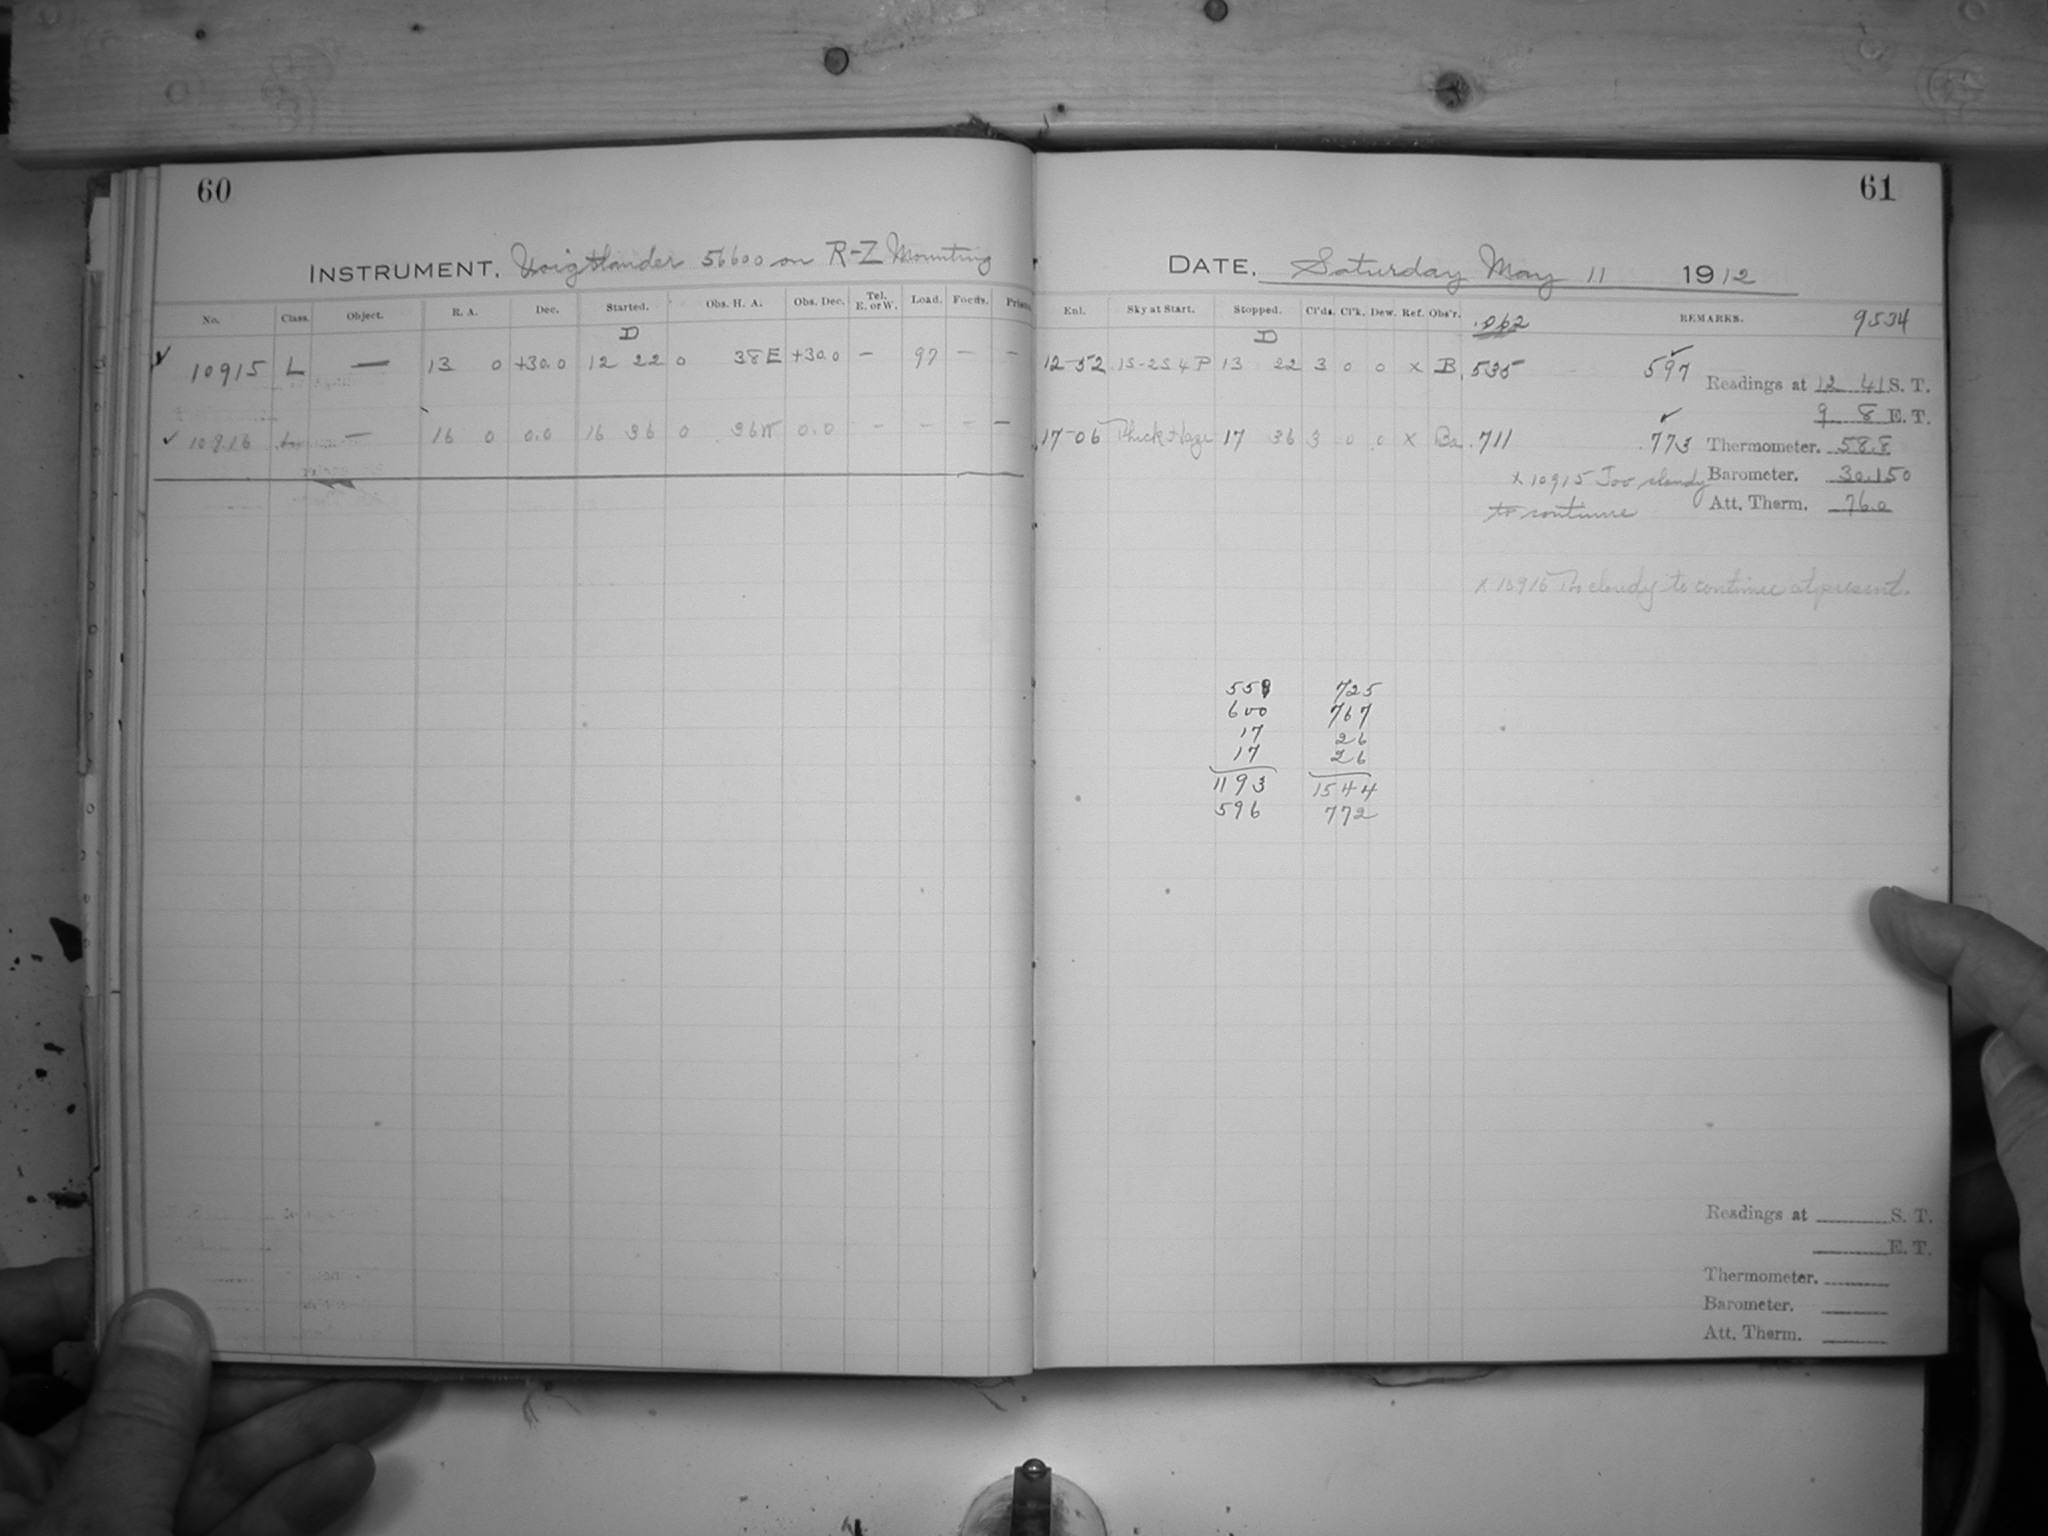 60
INSTRUMENT. Voigtlander 56600 on R-Z Mounting
No. Class. Object. R. A. Dec. Started. Obs. H. A. Obs. Dec. Tel. E. or W. Load. Focus.
D
✓ 10915 L — 13 0 +30.0 12 22 0 38E +30.0 — 97 — —
✓ 10916 — 16 0 0.0 16 36 0 36W 0.0 — — — —
61
DATE. Saturday May 11 1912
Enl. Sky at Start. Stopped. Cl'ds. Cl'k. Dew. Ref. Obs'r. .062 REMARKS. 9534
D
12-52 1S-2S 4 P 13 22 3 0 0 x B .535 597 ✓
Readings at 12 41 S. T.
9 8 E. T.
17-06 Thick Haze 17 36 3 0 0 x Ba .711 .773 ✓
Thermometer. 58.8
Barometer. 30.150
Att. Therm. 76.0
x 10915 Too cloudy
to continue
x 10916 Too cloudy to continue at present.
558 725
600 767
17 26
17 26
1193 1544
596 772
Readings at S. T.
E. T.
Thermometer.
Barometer.
Att. Therm.